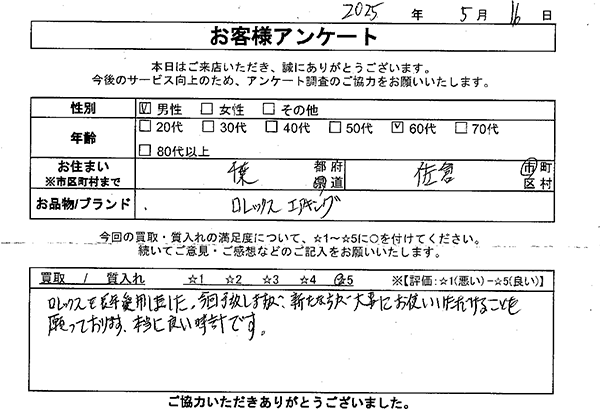 2025 年 5 月 16 日
お客様アンケート
本日はご来店いただき、誠にありがとうございます。
今後のサービス向上のため、アンケート調査のご協力をお願いいたします。
性別 ☑ 男性 □ 女性 □ その他
年齢 □ 20代 □ 30代 □ 40代 □ 50代 ☑ 60代 □ 70代
□ 80代以上
お住まい 千葉 都 府 県 道 佐倉 市 町 区 村
※市区町村まで
お品物/ブランド ロレックス エアキング
今回の買取・質入れの満足度について、☆1～☆5に○を付けてください。
続いてご意見・ご感想などのご記入をお願いいたします。
買取 / 質入れ ☆1 ☆2 ☆3 ☆4 ☆5 ※【評価:☆1(悪い)-☆5(良い)】
ロレックスを 愛用しました。今回手放しますが、新たな方が大事にお使いいただけることを
願っております。本当に良い時計です。
ご協力いただきありがとうございました。